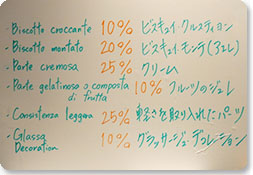 - Biscotto croccante 10% ビスキュイ・クルスティヨン
- Biscotto montato 20% ビスキュイ・モンテ(アエレ)
- Parte cremosa 25% クリーム
- Parte gelatinosa o composta di frutta 10% フルーツのジュレ
- Consistenza leggera 25% 軽さを取り入れたパーツ
- Glassa Decoration 10% グラッサージュ・デコレーション